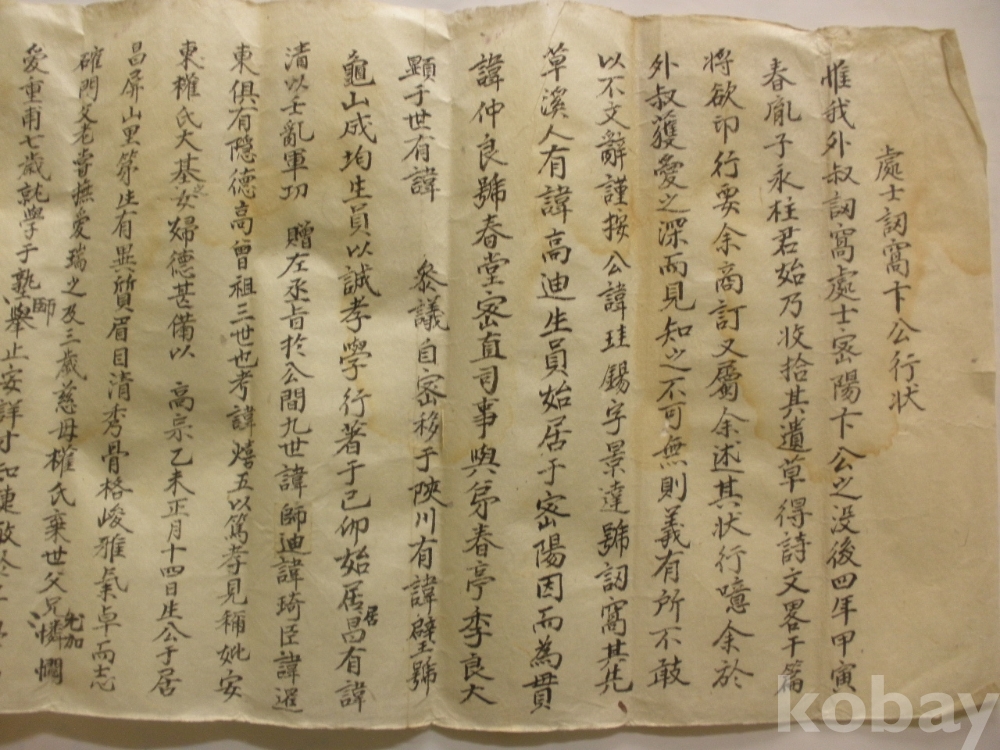 處士訒窩卞公行状
惟我外叔訒窩處士密陽卞公之没後四年甲寅
春胤子永柱君始乃收拾其遺草得詩文畧干篇
將欲印行要余商訂又屬余述其状行噫余於
外叔蒦愛之深而見知之不可無則義有所不敢
以不文辭謹按公諱珪錫字景達號訒窩其先
草溪人有諱高迪生員始居于密陽因而為貫
諱仲良號春堂密直司事與弟春亭季良大
顕于世有諱 叅議自密移于陜川有諱璧號
龜山成均生員以誠孝學行著于己卯始居居昌有諱
清以壬亂軍功 贈左丞旨於公間九世諱師迪諱琦臣諱暹
東俱有隠德高曾祖三世也考諱熺五以篤孝見稱妣安
東權氏大基之女婦德甚備以 高宗乙未正月十四日生公于居
昌屏山里第生有異質眉目清秀骨格峻雅氣卓而志
確門父老甞撫愛瑞之及三歲慈母權氏棄世父兄憐憫尤加
愛重甫七歲就學于塾師舉止安詳才知
kobay